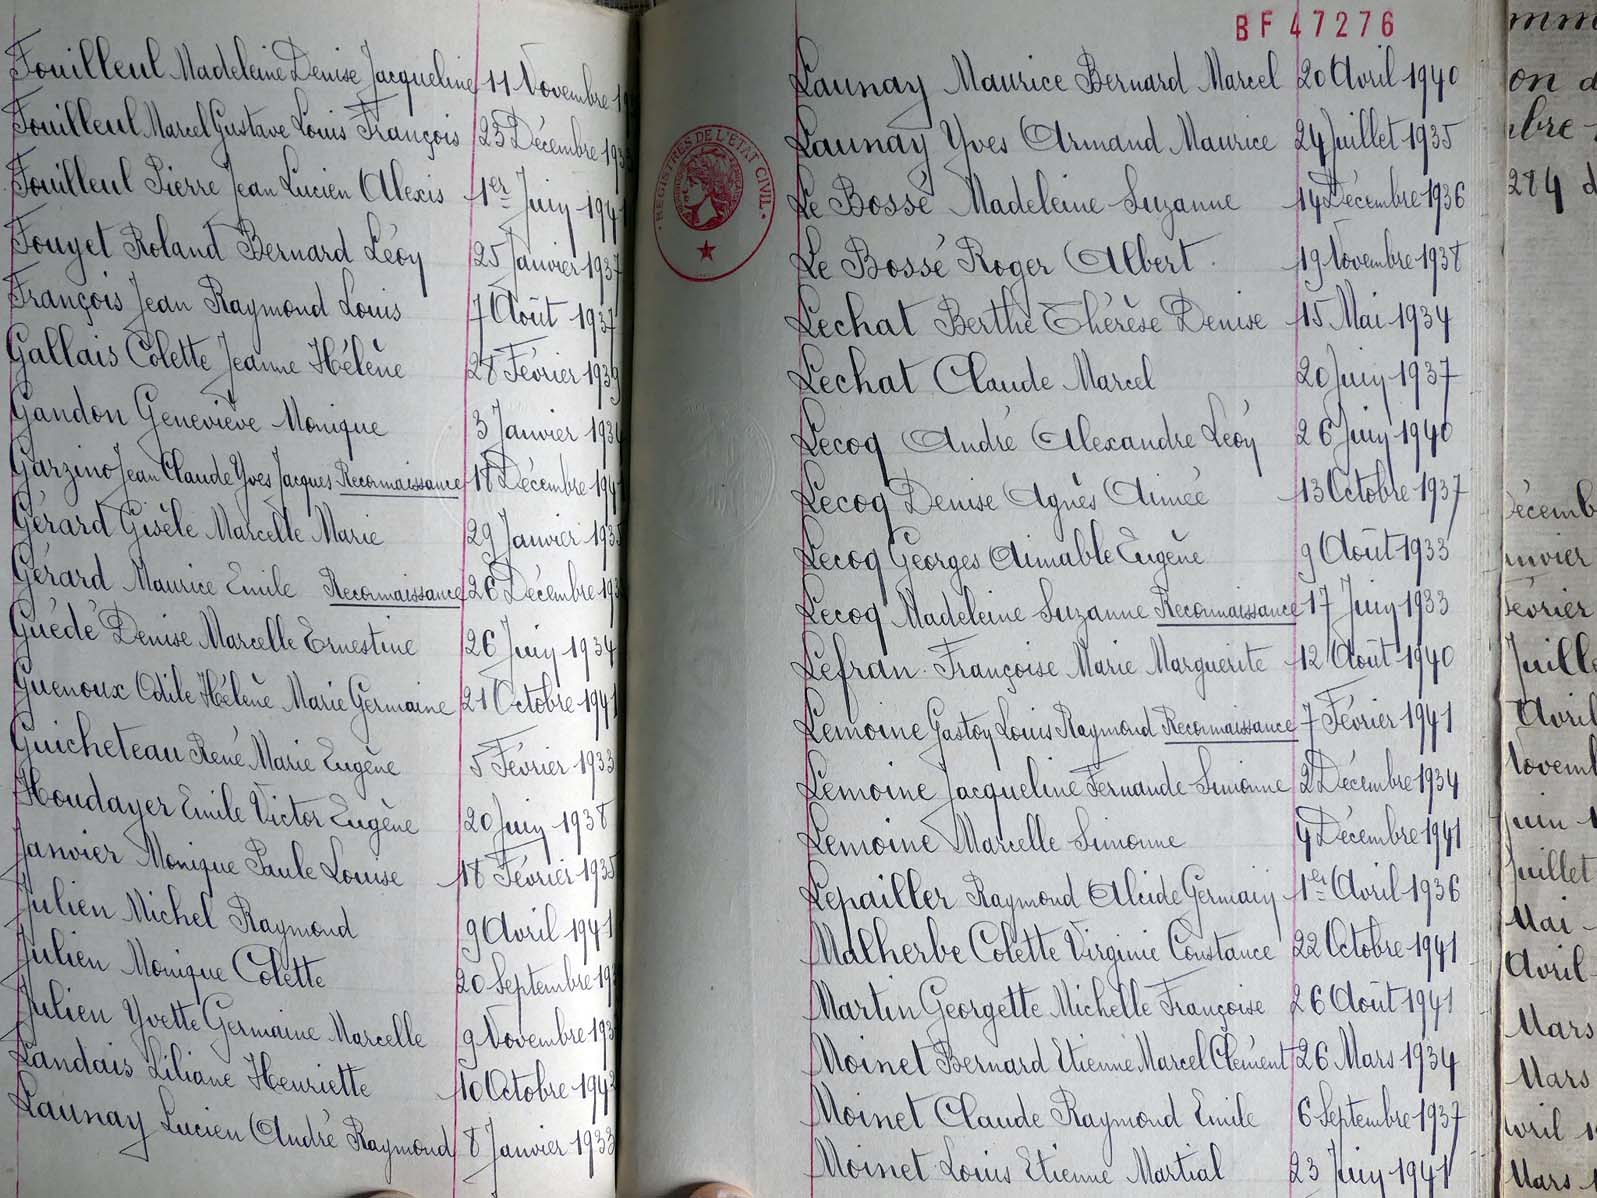 Fouilleul Madeleine Denise Jacqueline 11 Novembre
Fouilleul Marcel Gustave Louis François 23 Décembre
Fouilleul Pierre Jean Lucien Alexis 1er Juin 1941
Fouyet Roland Bernard Léon 25 Janvier 1937
François Jean Raymond Louis 7 Août 1937
Gallais Colette Jeanne Hélène 28 Février 1939
Gandon Geneviève Monique 3 Janvier 1934
Garzino Jean Claude Yves Jacques Reconnaissance 18 Décembre
Gérard Gisèle Marcelle Marie 29 Janvier 1935
Gérard Maurice Emile Reconnaissance 26 Décembre
Guédé Denise Marcelle Ernestine 26 Juin 1934
Guenoux Odile Hélène Marie Germaine 21 Octobre 1941
Guicheteau René Marie Eugène 5 Février 1933
Houdayer Emile Victor Eugène 20 Juin 1938
Janvier Monique Paule Louise 18 Février 1935
Julien Michel Raymond 9 Avril 1941
Julien Monique Colette 20 Septembre
Julien Yvette Germaine Marcelle 9 Novembre
Landais Liliane Henriette 10 Octobre
Launay Lucien André Raymond 8 Janvier 1933
REGISTRES DE L'ETAT CIVIL
BF 47276
Launay Maurice Bernard Marcel 20 Avril 1940
Launay Yves Armand Maurice 24 Juillet 1935
Le Bossé Madeleine Suzanne 14 Décembre 1936
Le Bossé Roger Albert 19 Novembre 1938
Lechat Berthe Thérèse Denise 15 Mai 1934
Lechat Claude Marcel 20 Juin 1937
Lecoq André Alexandre Léon 26 Juin 1940
Lecoq Denise Agnès Aimée 13 Octobre 1937
Lecoq Georges Aimable Eugène 9 Août 1933
Lecoq Madeleine Suzanne Reconnaissance 17 Juin 1933
Lefran Françoise Marie Marguerite 12 Août 1940
Lemoine Gaston Louis Raymond Reconnaissance 7 Février 1941
Lemoine Jacqueline Fernande Simonne 2 Décembre 1934
Lemoine Marcelle Simonne 4 Décembre 1941
Lepailler Raymond Alcide Germain 1er Avril 1936
Malherbe Colette Virginie Constance 22 Octobre 1941
Martin Georgette Michelle Françoise 26 Août 1941
Moinet Bernard Etienne Marcel Clément 26 Mars 1934
Moinet Claude Raymond Emile 6 Septembre 1937
Moinet Louis Etienne Martial 23 Juin 1941
on d
bre
284 d
Décemb
anvier
Février
Juille
Avril
Novemb
juin 1
Juillet
Mai
Avril
Mars
Mars
Avril 1
Mars 1